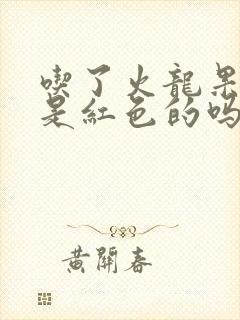 喫了火龍果
是紅色的嗎
黃開春